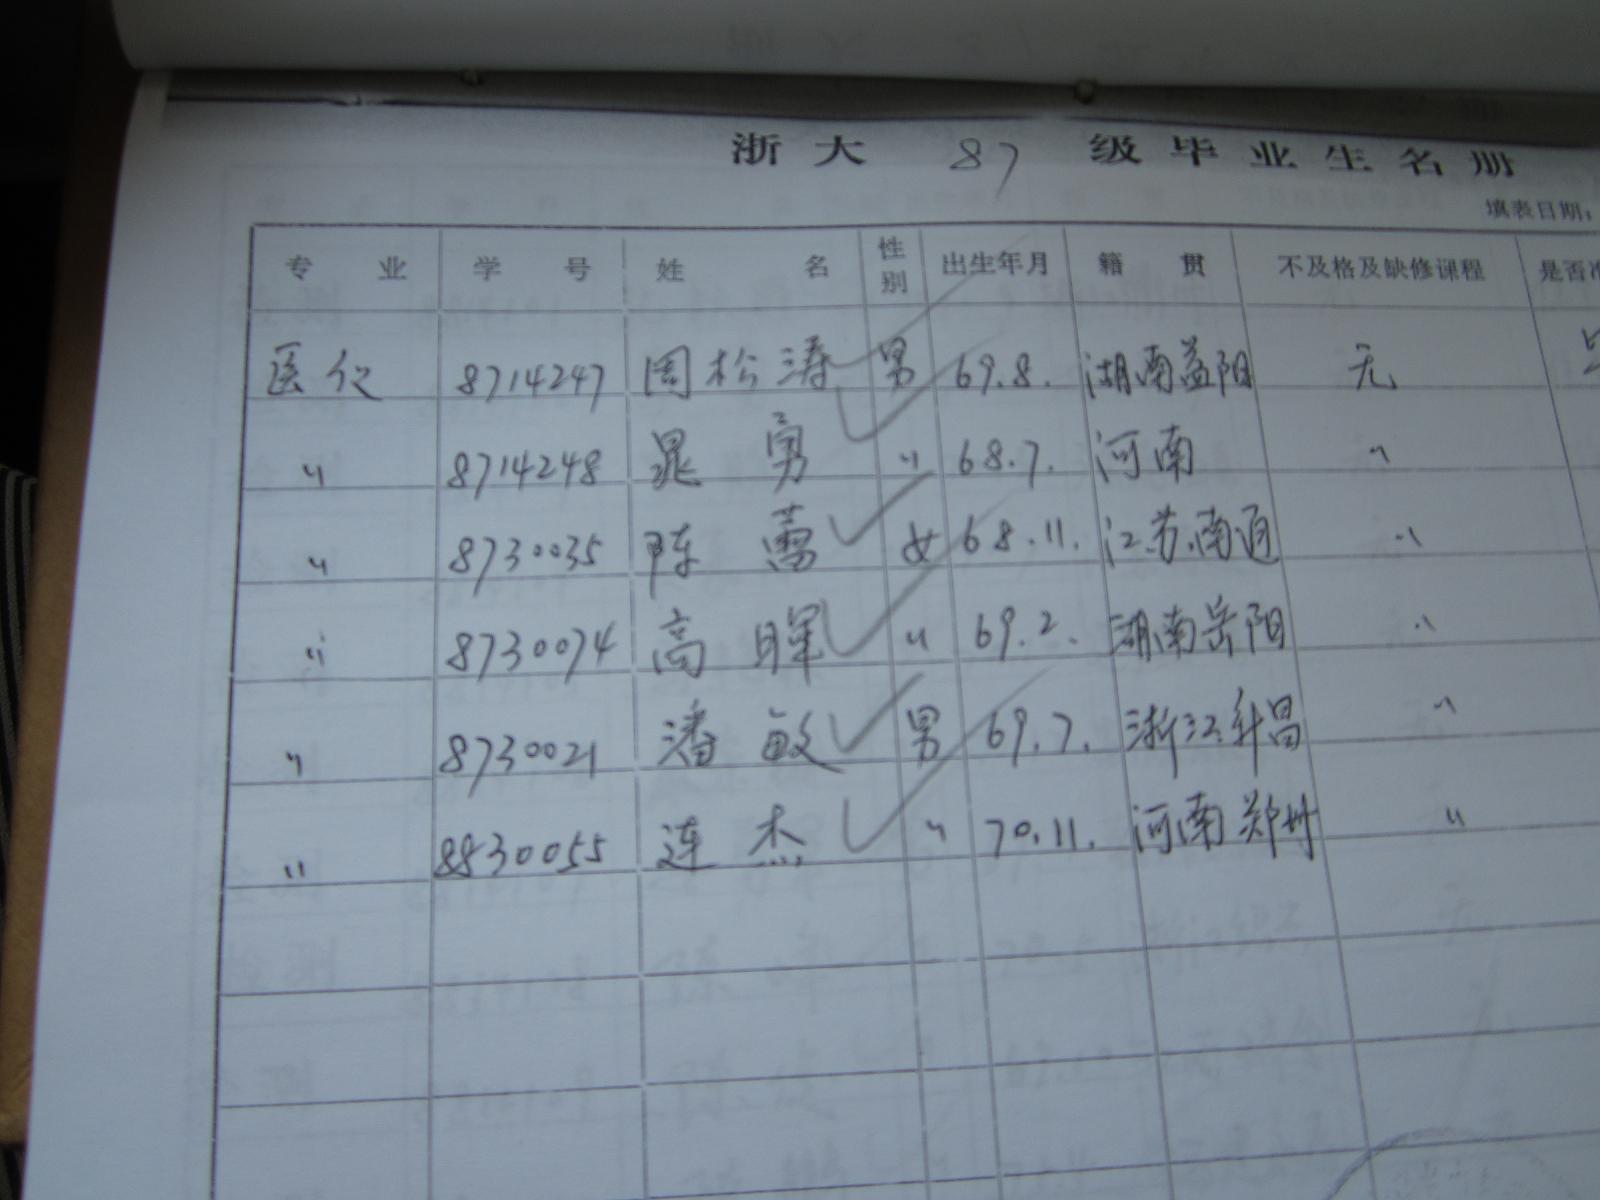 浙大 87 级毕业生名册
填表日期:
专业 学号 姓名 性别 出生年月 籍贯 不及格及缺修课程 是否准
医仪 8714247 周松涛 男 69.8. 湖南益阳 无
〃 8714248 晁勇 〃 68.7. 河南 〃
〃 8730035 陈蕾 女 68.11. 江苏南通 〃
〃 8730074 高晖 〃 69.2. 湖南岳阳 〃
〃 8730021 潘敏 男 69.7. 浙江新昌 〃
〃 8830055 连杰 〃 70.11. 河南郑州 〃